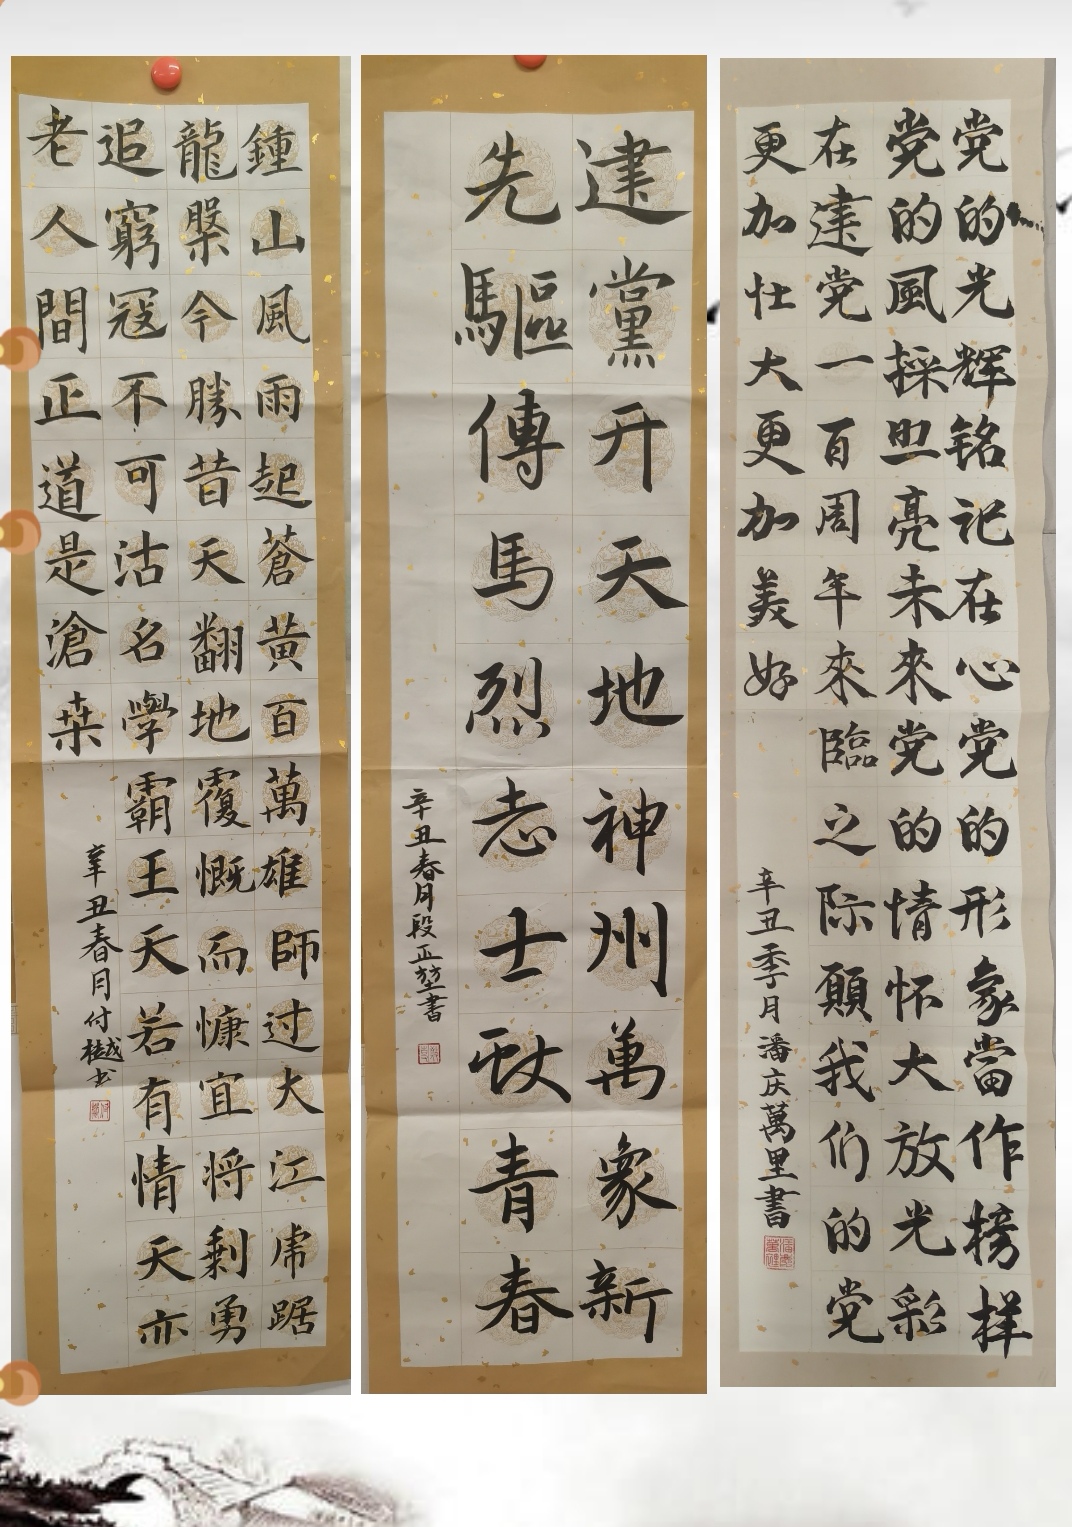 鍾山風雨起蒼黃百萬雄師过大江虎踞
龍槃今勝昔天翻地覆慨而慷宜将剩勇
追窮冦不可沽名學霸王天若有情天亦
老人間正道是滄桒
辛丑春月付樾书
建黨开天地神州萬象新
先驅傳馬烈志士献青春
辛丑春月段正堃書
党的光辉铭记在心党的形象當作榜样
党的風採照亮未來党的情怀大放光彩
在建党一百周年來臨之际願我们的党
更加壮大更加美好
辛丑季月潘庆萬里書